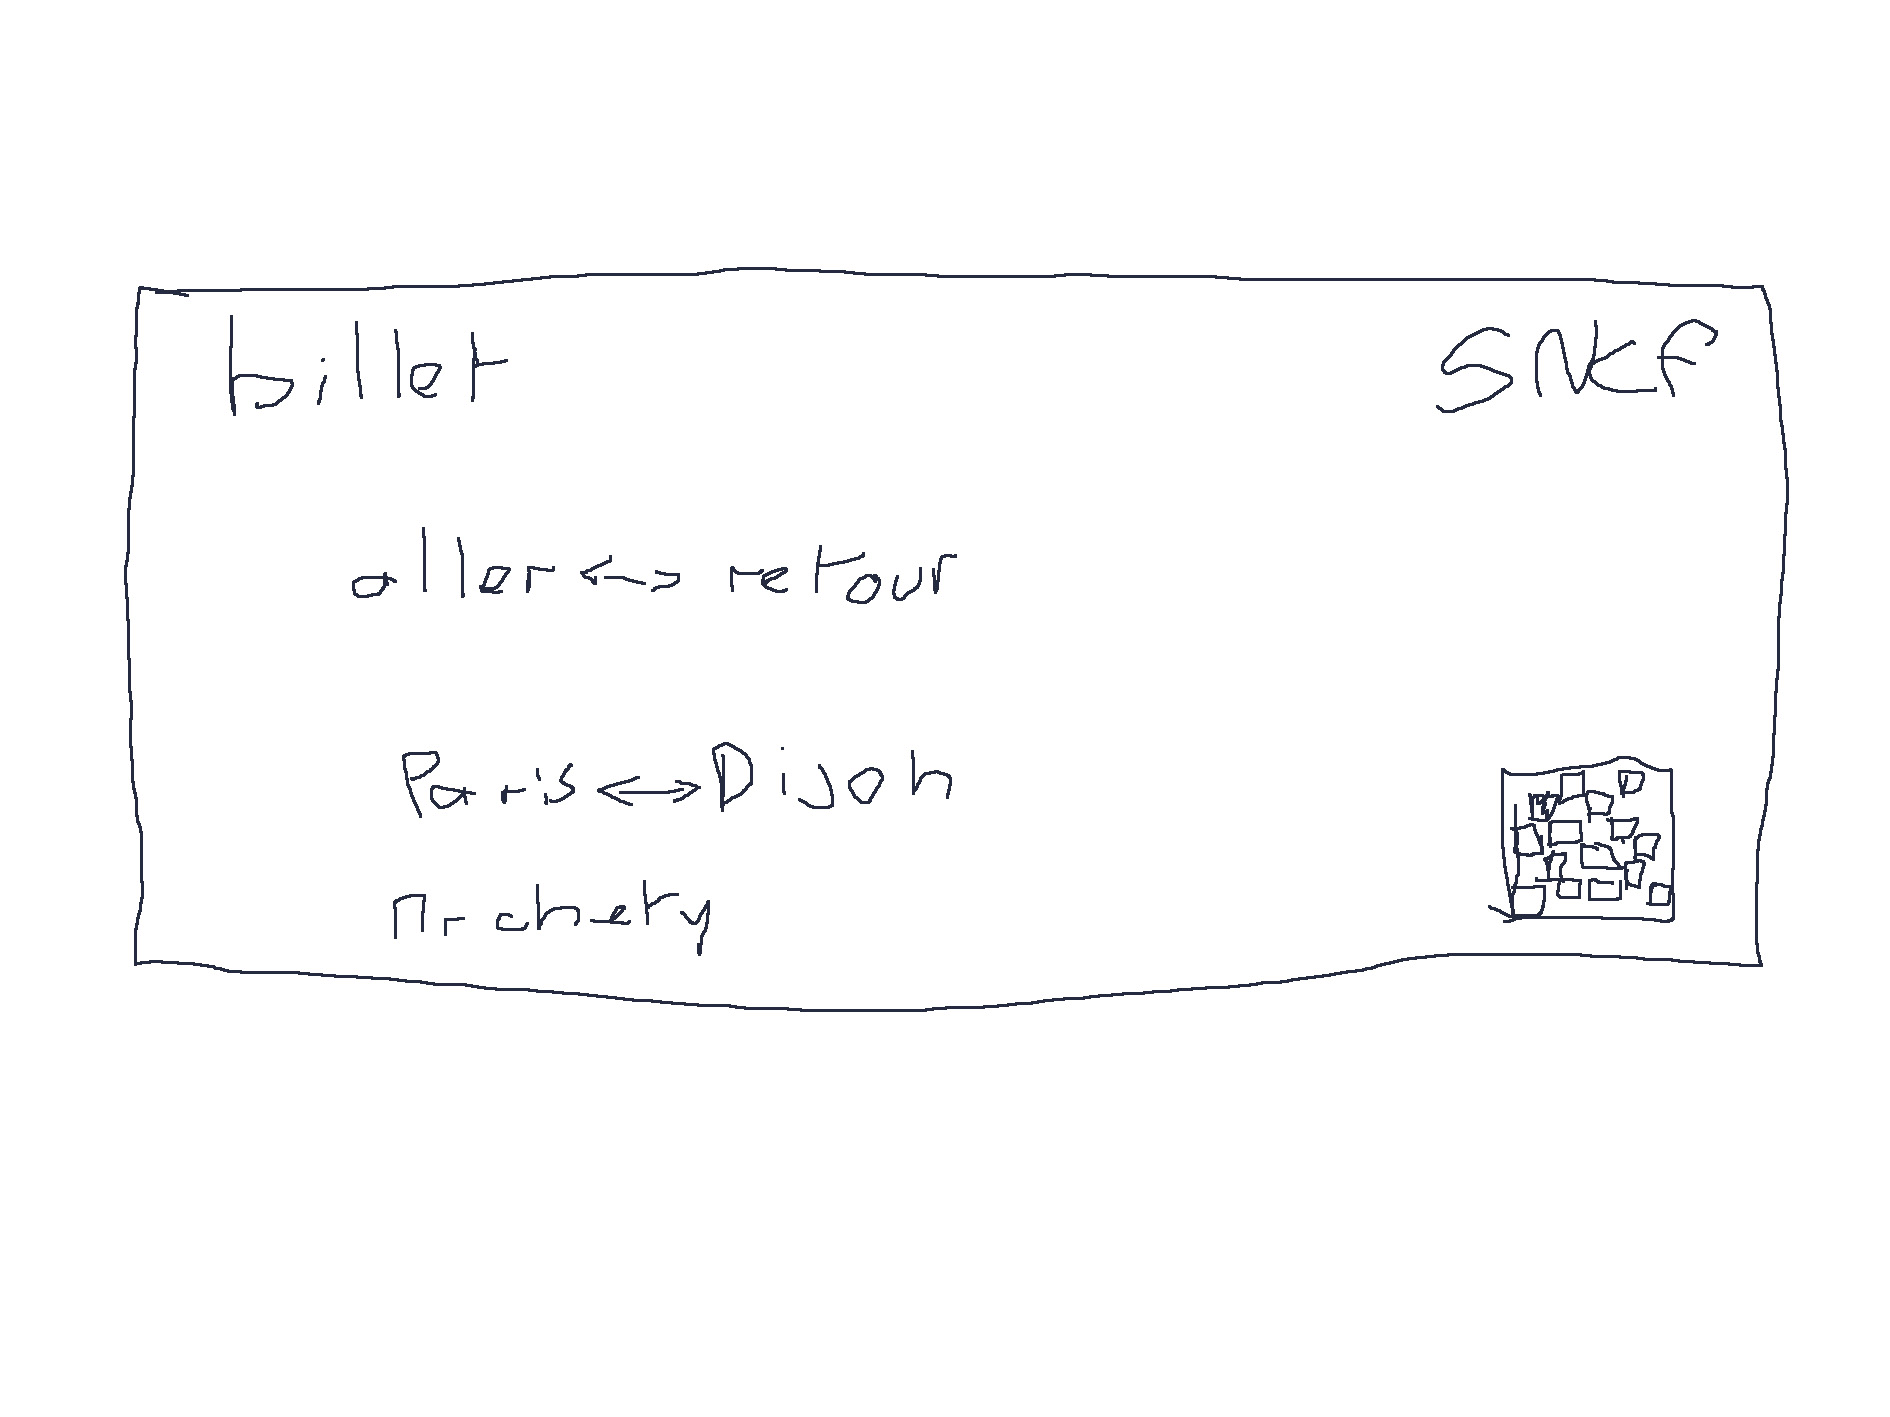 billet SNCF
aller <-> retour
Paris <-> Dijon
Mr chety